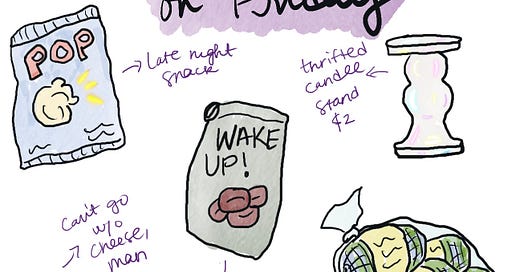 on Friday
POP
Late night
snack
thrifted
candle
stand
$2
WAKE
UP!
Can't go
w/o
cheese,
man